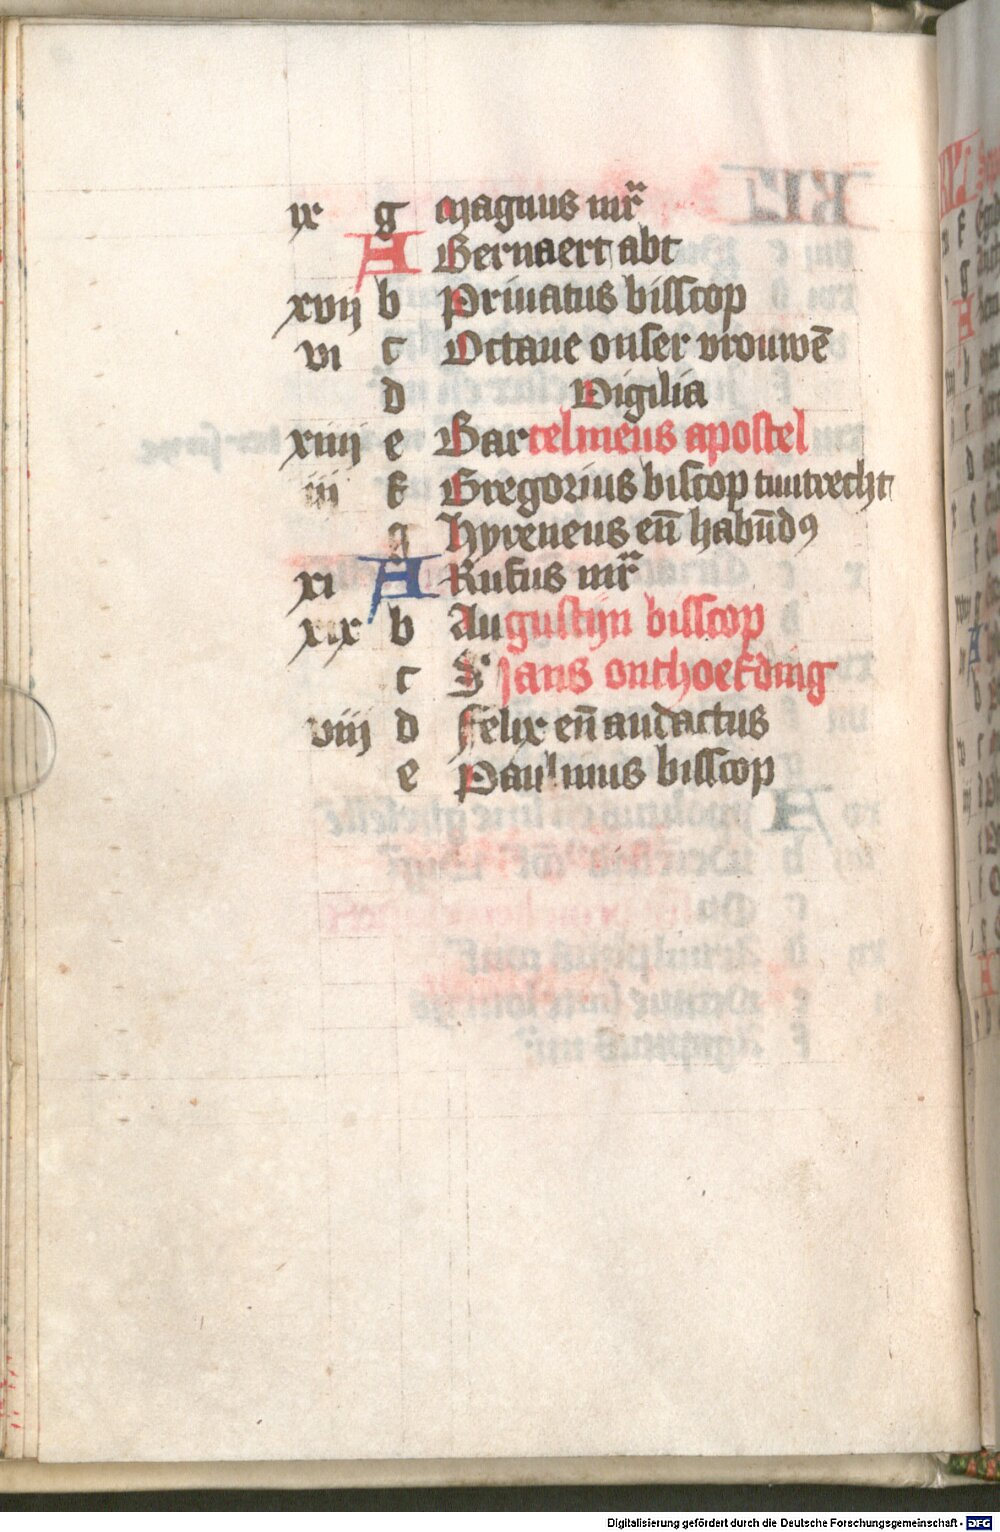 ix g Magnus mr̃
A Bernaert abt
xvij b Priuatus bisscop
vi c Octaue onser vrouwē
d Vigilia
xiiij e Bartelmeus apostel
iij f Gregorius biscop tuutrecht
g Hyreneus en̄ habūdꝯ
xi A Rufus mr̃
xix b Augustijn bisscop
c S' Jans onthoefding
viij d Felix en̄ audactus
e Paulinus bisscop
Digitalisierung gefördert durch die Deutsche Forschungsgemeinschaft - DFG